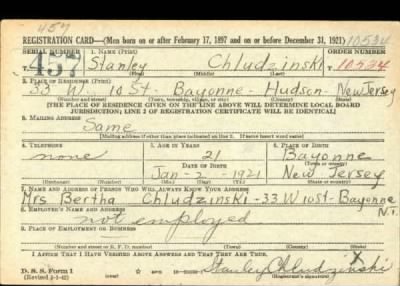 457
REGISTRATION CARD—(Men born on or after February 17, 1897 and on or before December 31, 1921) 10534
SERIAL NUMBER 1. NAME (Print) ORDER NUMBER
T 457 Stanley Chludzinski T 10534
(First) (Middle) (Last)
2. PLACE OF RESIDENCE (Print)
33 W 10 St- Bayonne- Hudson- New Jersey
(Number and street) (Town, township, village, or city) (County) (State)
[THE PLACE OF RESIDENCE GIVEN ON THE LINE ABOVE WILL DETERMINE LOCAL BOARD
JURISDICTION; LINE 2 OF REGISTRATION CERTIFICATE WILL BE IDENTICAL]
3. MAILING ADDRESS
Same
[Mailing address if other than place indicated on line 2. If same insert word same]
4. TELEPHONE 5. AGE IN YEARS 6. PLACE OF BIRTH
none 21 Bayonne
DATE OF BIRTH (Town or county)
Jan-2-1921 New Jersey
(Exchange) (Number) (Mo.) (Day) (Yr.) (State or country)
7. NAME AND ADDRESS OF PERSON WHO WILL ALWAYS KNOW YOUR ADDRESS
Mrs Bertha Chludzinski-33 W 10 St- Bayonne
N.J.
8. EMPLOYER'S NAME AND ADDRESS
not employed
9. PLACE OF EMPLOYMENT OR BUSINESS
(Number and street or R. F. D. number) (Town) (County) (State)
I AFFIRM THAT I HAVE VERIFIED ABOVE ANSWERS AND THAT THEY ARE TRUE.
D. S. S. Form 1
(Revised 2-1-42)
X
Stanley Chludzinski
(Registrant's signature)